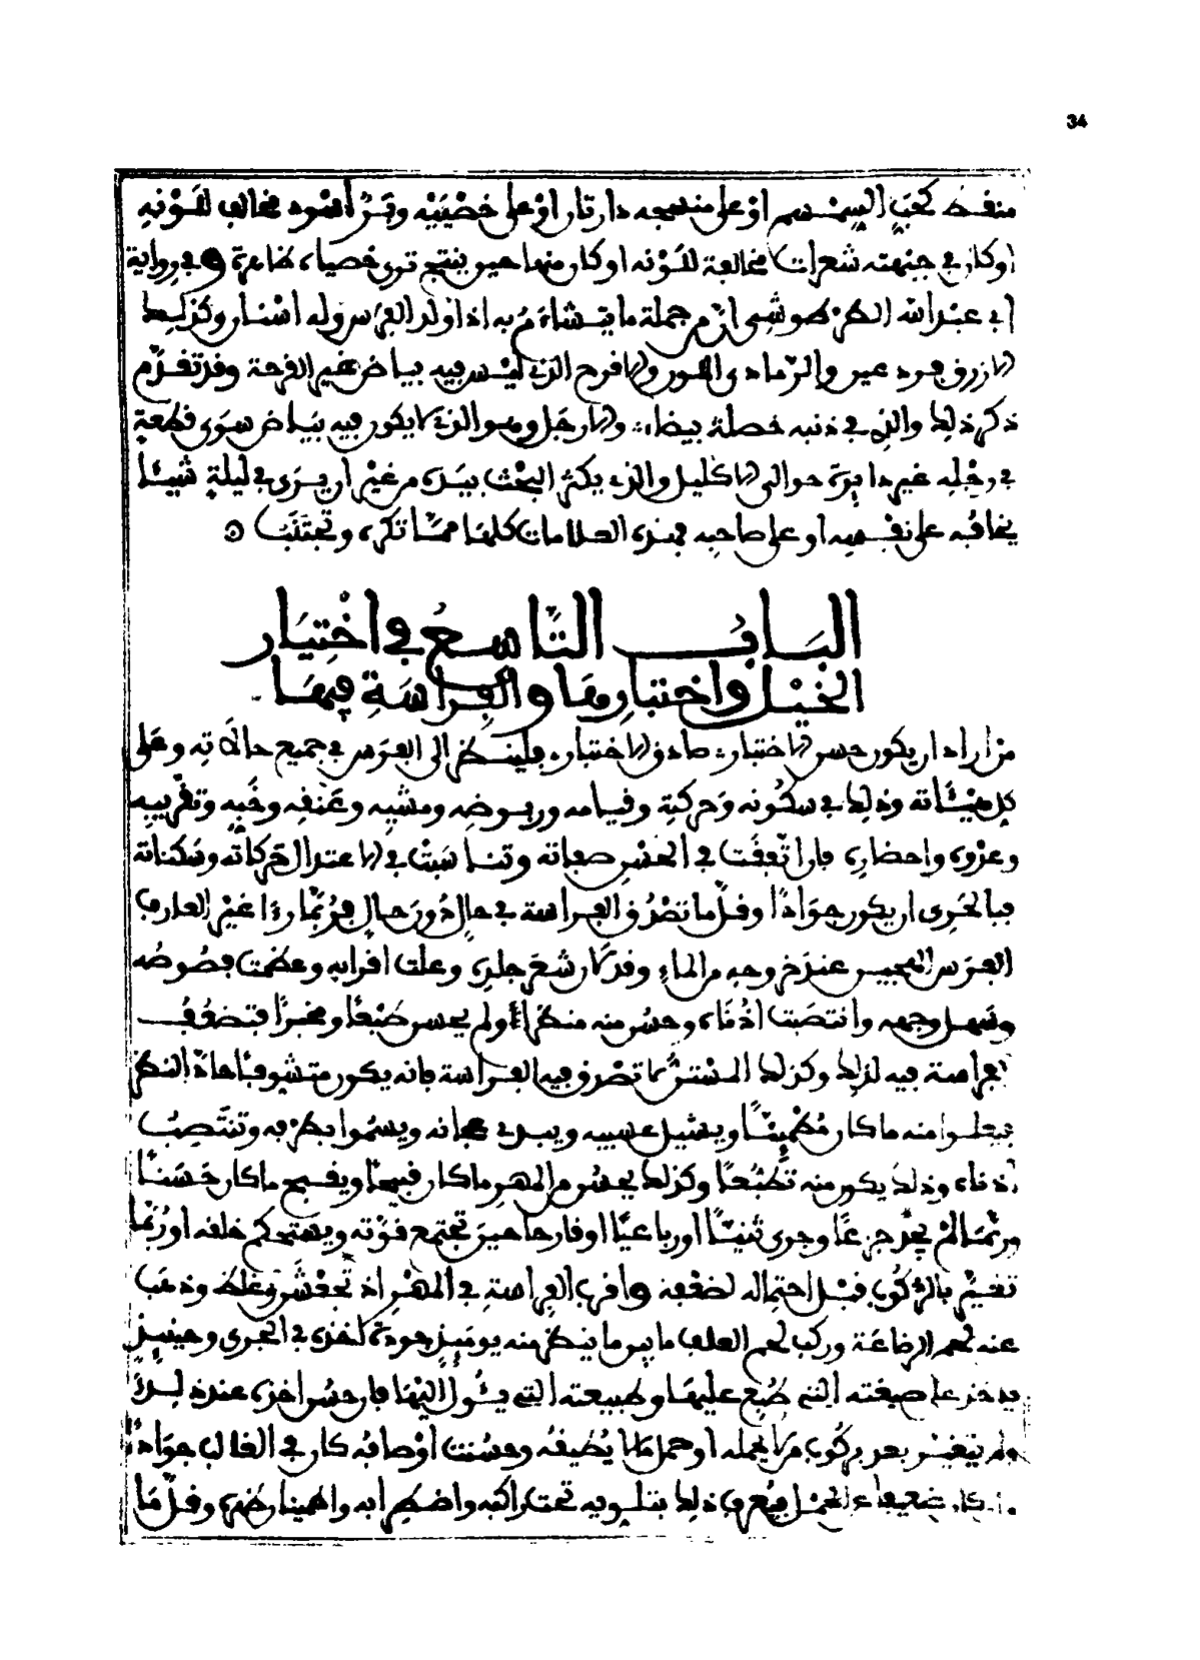 34
منقط كحَبّ السِمْسم اوْ على منسجه دارتان اوْ على خصْيَيْه وبَرٌ أسْود مخالف للَوْنه
أو كان في جبهته شعرات مخالفة للَوْنه او كان منها حين ينتج ترى خصياه ظاهرة وفي رواية
أبي عبْد الله الطرطوشي انّ من جملة ما يتشاءَمُ به اذا وُلد الفرس وله اسْنان وكذلِك
الازرق بفرد عين والرّمادى اللون والاقرح الذي ليْس فيه بياض غير القرحة وقد تقدّم
ذكر ذلك والذي في ذنبه خصلة بيضاء والارجَل وهو الذي لا يكون فيه بيَاض سوَى قطعةٍ
في رجْلِه غير دايرَة حوالى الاكليل والذي يكثر البحْث بيَده من غيْر ان يرَى في ليلةٍ شيئًا
يخافُه على نفْسه او على صاحبِه فهذه العلامات كلها ممّا تكره وتجتَنَبُ
البَابُ التَّاسِعُ في اخْتِيَار
الخيْل واختبارِهَا والفِراسَةِ فِيهَا
من اراد ان يكون حسن الاختيار صادق الاختبار فلينْظر الى الفرَس في جميع حالاَتِه وعلى
كل هيْئاته وذلك في سكُونه وَحركتِه وقيامه وربوضه ومشيِه وعَنَقِه وخَبِه وتقْرِيبِه
وعدْوه واحضارِه فان اتّفقَت في الحسْن صفاته وتناسَبَتْ في الاعتدال حَركاتُه وسَكناته
فبالحَرِى ان يكون جوَادًا وقلّ ما تصْدُق الفراسة في حالٍ دُونَ حَالٍ فرُبّما رءا غيْر العارف
الفرَس الهجين عند خروجه من الماء وقد كان شعَر جلده وعلت اقرابه وعظمت فصُوصُه
وسَهل وجهه وانتصَبت اذُنَاه وحسُن منه منظرًا ولم يحسن طبْعًا ومخبرًا فتضعُفُ
الفراسة فيه لذلك وكذلك المستنّ لا تصْدق فيه الفراسة فانه يكون متشوفًا حادّ النظر
فيعلوا منه ما كان مُطْمئنًا ويشيل عسيبه ويبدى عجانه ويسْمُوا بطرفه وتنتَصِبُ
أذناه وذلك يكون منه تطَبُّعًا وكذلك يحسُن من المهر ما كان قبيحًا ويقبح ما كان حَسَنًا
وربّما لمْ يجْرِ جذعًا وجرى ثنيًّا او رباعيًّا او قارحًا حينَ تجتمع قوّته ويستحكم خلقه او رُبّما
تغيّر بالركُوب قبْل احتماله لضعْفه واقرب الفراسةِ في المهْر اذا تجَفّشَ وغلظ وذهب
عنه لحم الرضاعَة وركب لحم العلف فاِن ما ينظر منه يومَئِذٍ جودةُ اخذِه في الجرى وحينئِذٍ
يدخر على صبغته التي طُبع عليهَا وطبيعته التي يئُول اليْهَا فان حسُن اخذه عنده لبده
ولم يتغيّر بعد بركُوب من لا يحمله او حمل مالا يُطيقُه وحسُنت اوْصافُه كان في الغالب جوَادًا
وان كان ضعيفًا عن الحمْل فيُعرف ذلك بتلويه تحت راكبه واضطرابه وانحناء ظهره وقلّ مَا